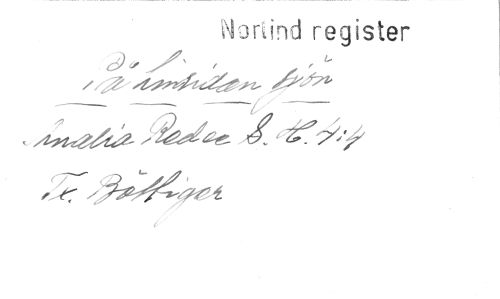 Norlind register
På hinsidan sjön
Amalia Redec S. H. 4:4
Tx. Böttiger